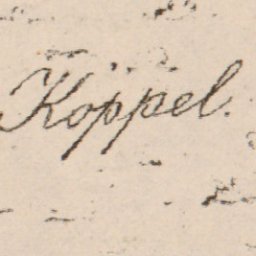 Köppel.